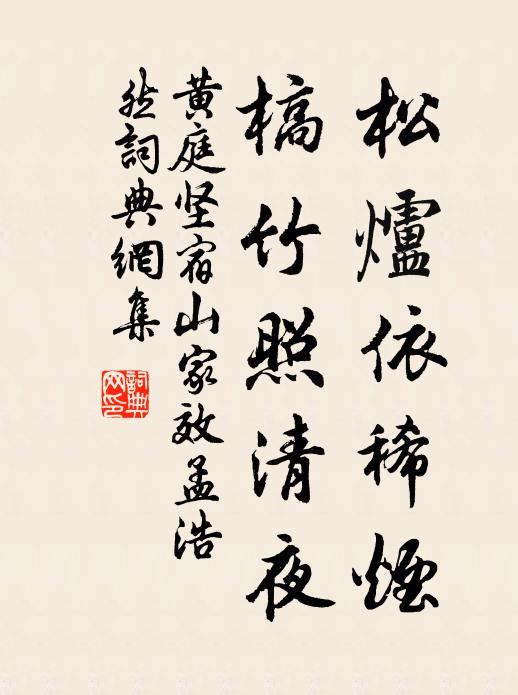 松爐依稀煙
槁竹照清夜
黄庭坚宿山家效孟浩
然詞典網集
詞典
网印